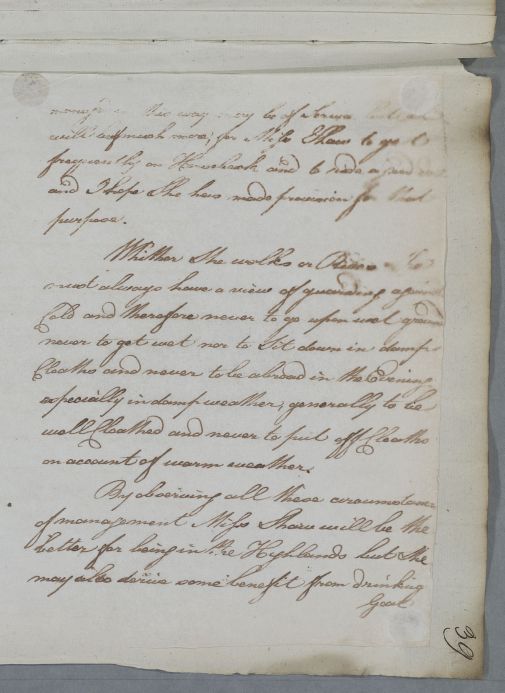 this way may be of Service but it
will do much more, for Miss Shaw to get
frequently on Horseback and to ride a good
and I hope She has made provision for that
purpose.
Whither She walks or Rides She
must always have a view of guarding against
Cold and therefore never to go upon wet ground
never to get wet nor to Sit down in damp
Cloaths and never to be abroad in the Evening
especially in damp weather; generally to be
well Cloathed and never to put off Cloaths
on account of warm weather.
By observing all these circumstances
of management Miss Shaw will be the
better for being in the Highlands but She
may also derive some benefit from drinking
Goat
39